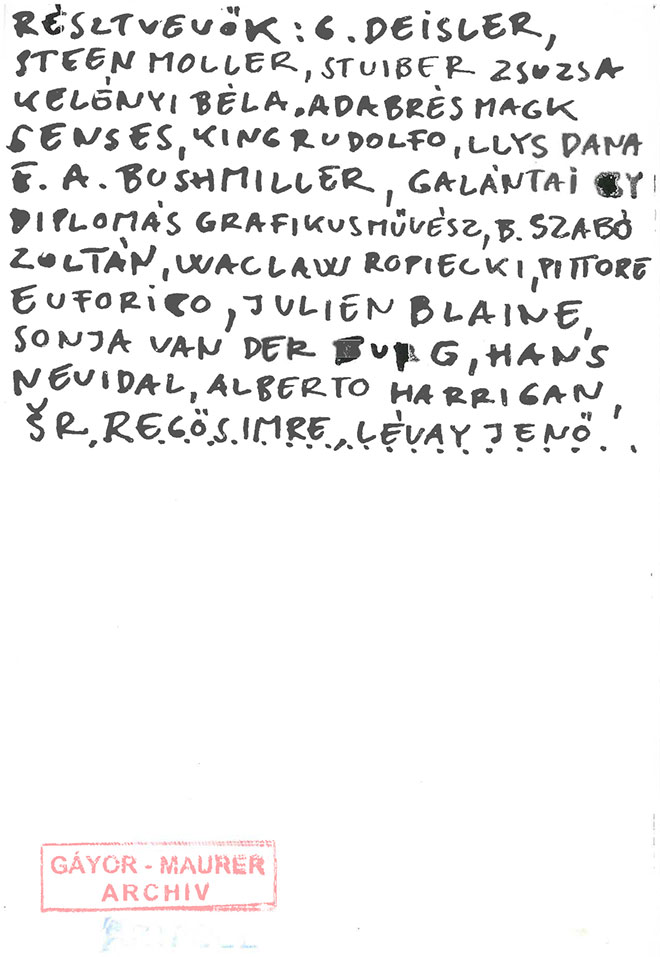 RÉSZTVEVŐK: G. DEISLER,
STEEN MOLLER, STUIBER ZSUZSA
KELÉNYI BÈLA. ADABRÈS MAGK
SENSES, KING RUDOLFO, LLYS DANA
F. A. BUSHMILLER, GALÁNTAI GY
DIPLOMÁS GRAFIKUSMŰVÉSZ, B. SZABÓ
ZOLTÁN, WACLAW ROPIECKI, PITTORE
EUFORICO, JULIEN BLAINE,
SONJA VAN DER BURG, HANS
NEVIDAL, ALBERTO HARRIGAN,
ŠR, REGŐS IMRE, LÉVAY JENŐ
GÁYOR - MAURER
ARCHIV